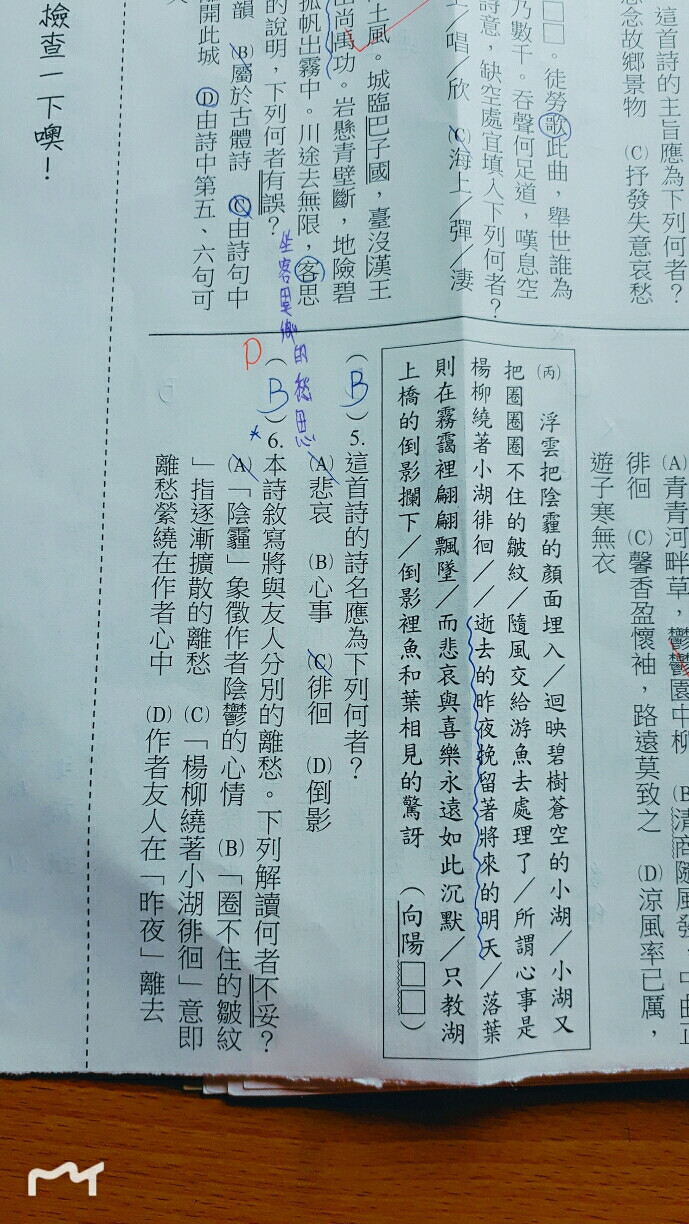 這首詩的主旨應為下列何者?
思念故鄉景物 (C)抒發失意哀愁
□□□。徒勞歌此曲,舉世誰為
乃數千。吞聲何足道,嘆息空
詩意,缺空處宜填入下列何者?
/唱/欣 (C)海上/彈/淒
土風。城臨巴子國,臺沒漢王
尚禹功。岩懸青壁斷,地險碧
孤帆出霧中。川途去無限,客思
的說明,下列何者有誤?
韻 (B)屬於古體詩 (C)由詩句中
開此城 (D)由詩中第五、六句可
坐客思鄉的愁思
檢查一下噢!
(A)青青河畔草,鬱鬱園中柳 (B)清商隨風發,中曲正
徘徊 (C)馨香盈懷袖,路遠莫致之 (D)涼風率已厲,
遊子寒無衣
(丙) 浮雲把陰霾的顏面埋入/迴映碧樹蒼空的小湖/小湖又
把圈圈圈不住的皺紋/隨風交給游魚去處理了/所謂心事是
楊柳繞著小湖徘徊//逝去的昨夜挽留著將來的明天/落葉
則在霧靄裡翩翩飄墜/而悲哀與喜樂永遠如此沉默/只教湖
上橋的倒影攔下/倒影裡魚和葉相見的驚訝 (向陽□□)
(B)5.這首詩的詩名應為下列何者?
(A)悲哀 (B)心事 (C)徘徊 (D)倒影
D
(B)6.本詩敘寫將與友人分別的離愁。下列解讀何者不妥?
*
(A)「陰霾」象徵作者陰鬱的心情 (B)「圈不住的皺紋
」指逐漸擴散的離愁 (C)「楊柳繞著小湖徘徊」意即
離愁縈繞在作者心中 (D)作者友人在「昨夜」離去